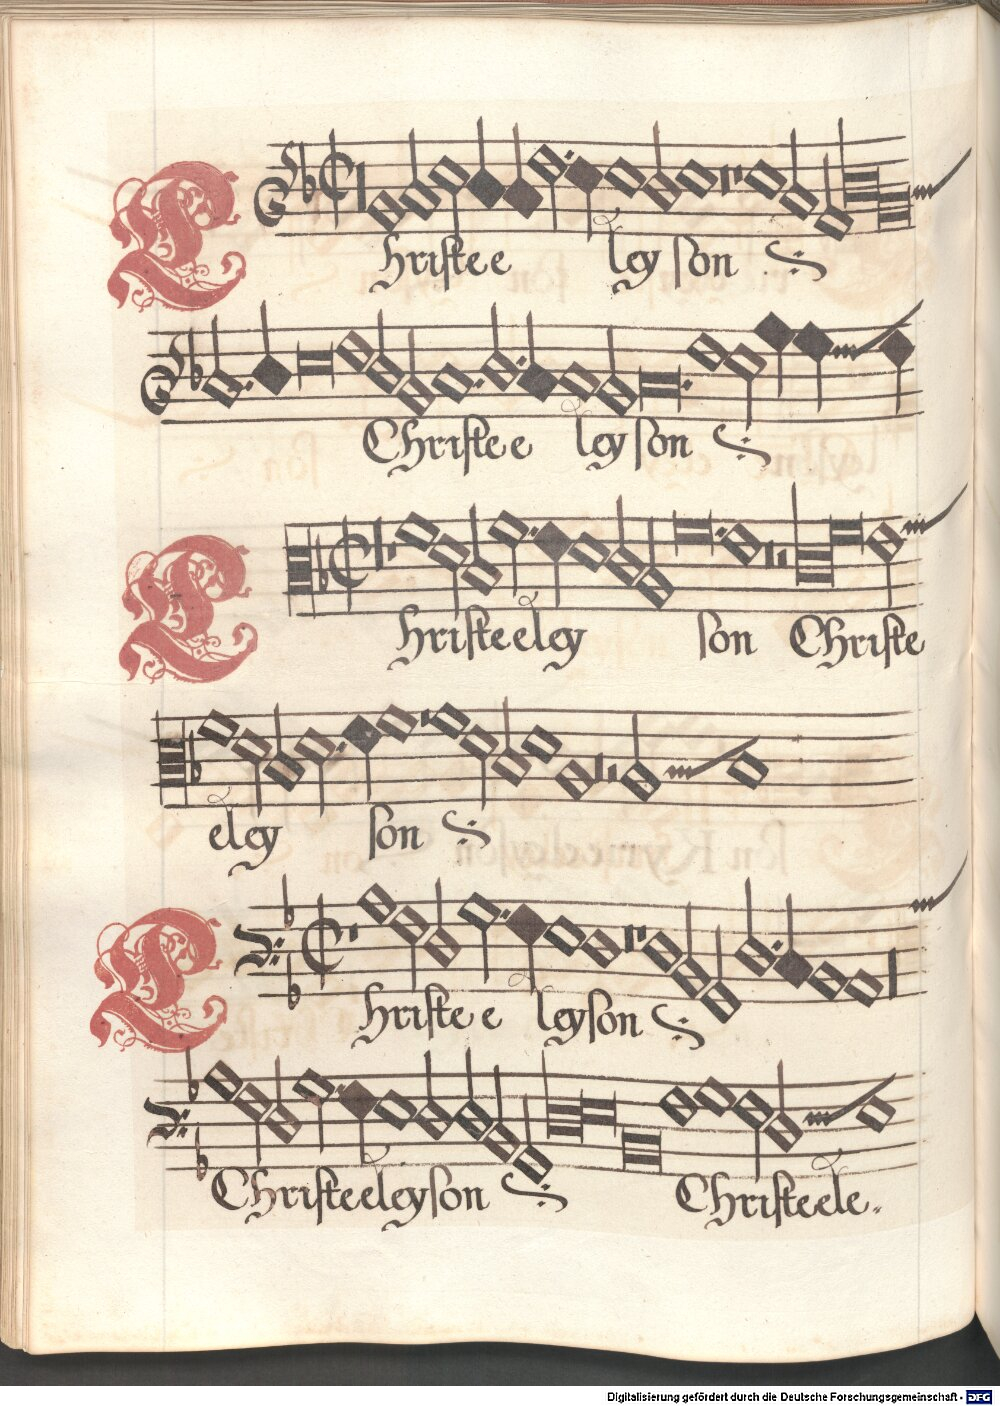 Christe e ley son
Christe e ley son
Christe eley son Christe
eley son
Christe e leyson
Christe eleyson Christe ele-
Digitalisierung gefördert durch die Deutsche Forschungsgemeinschaft - DFG